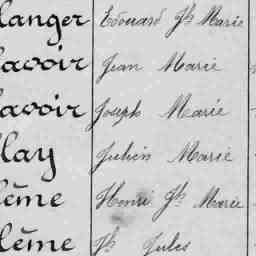 langer Edouard Jh Marie
avoir Jean Marie
avoir Joseph Marie
lay Julien Marie
lême Henri Jh Marie
lême Jh Jules